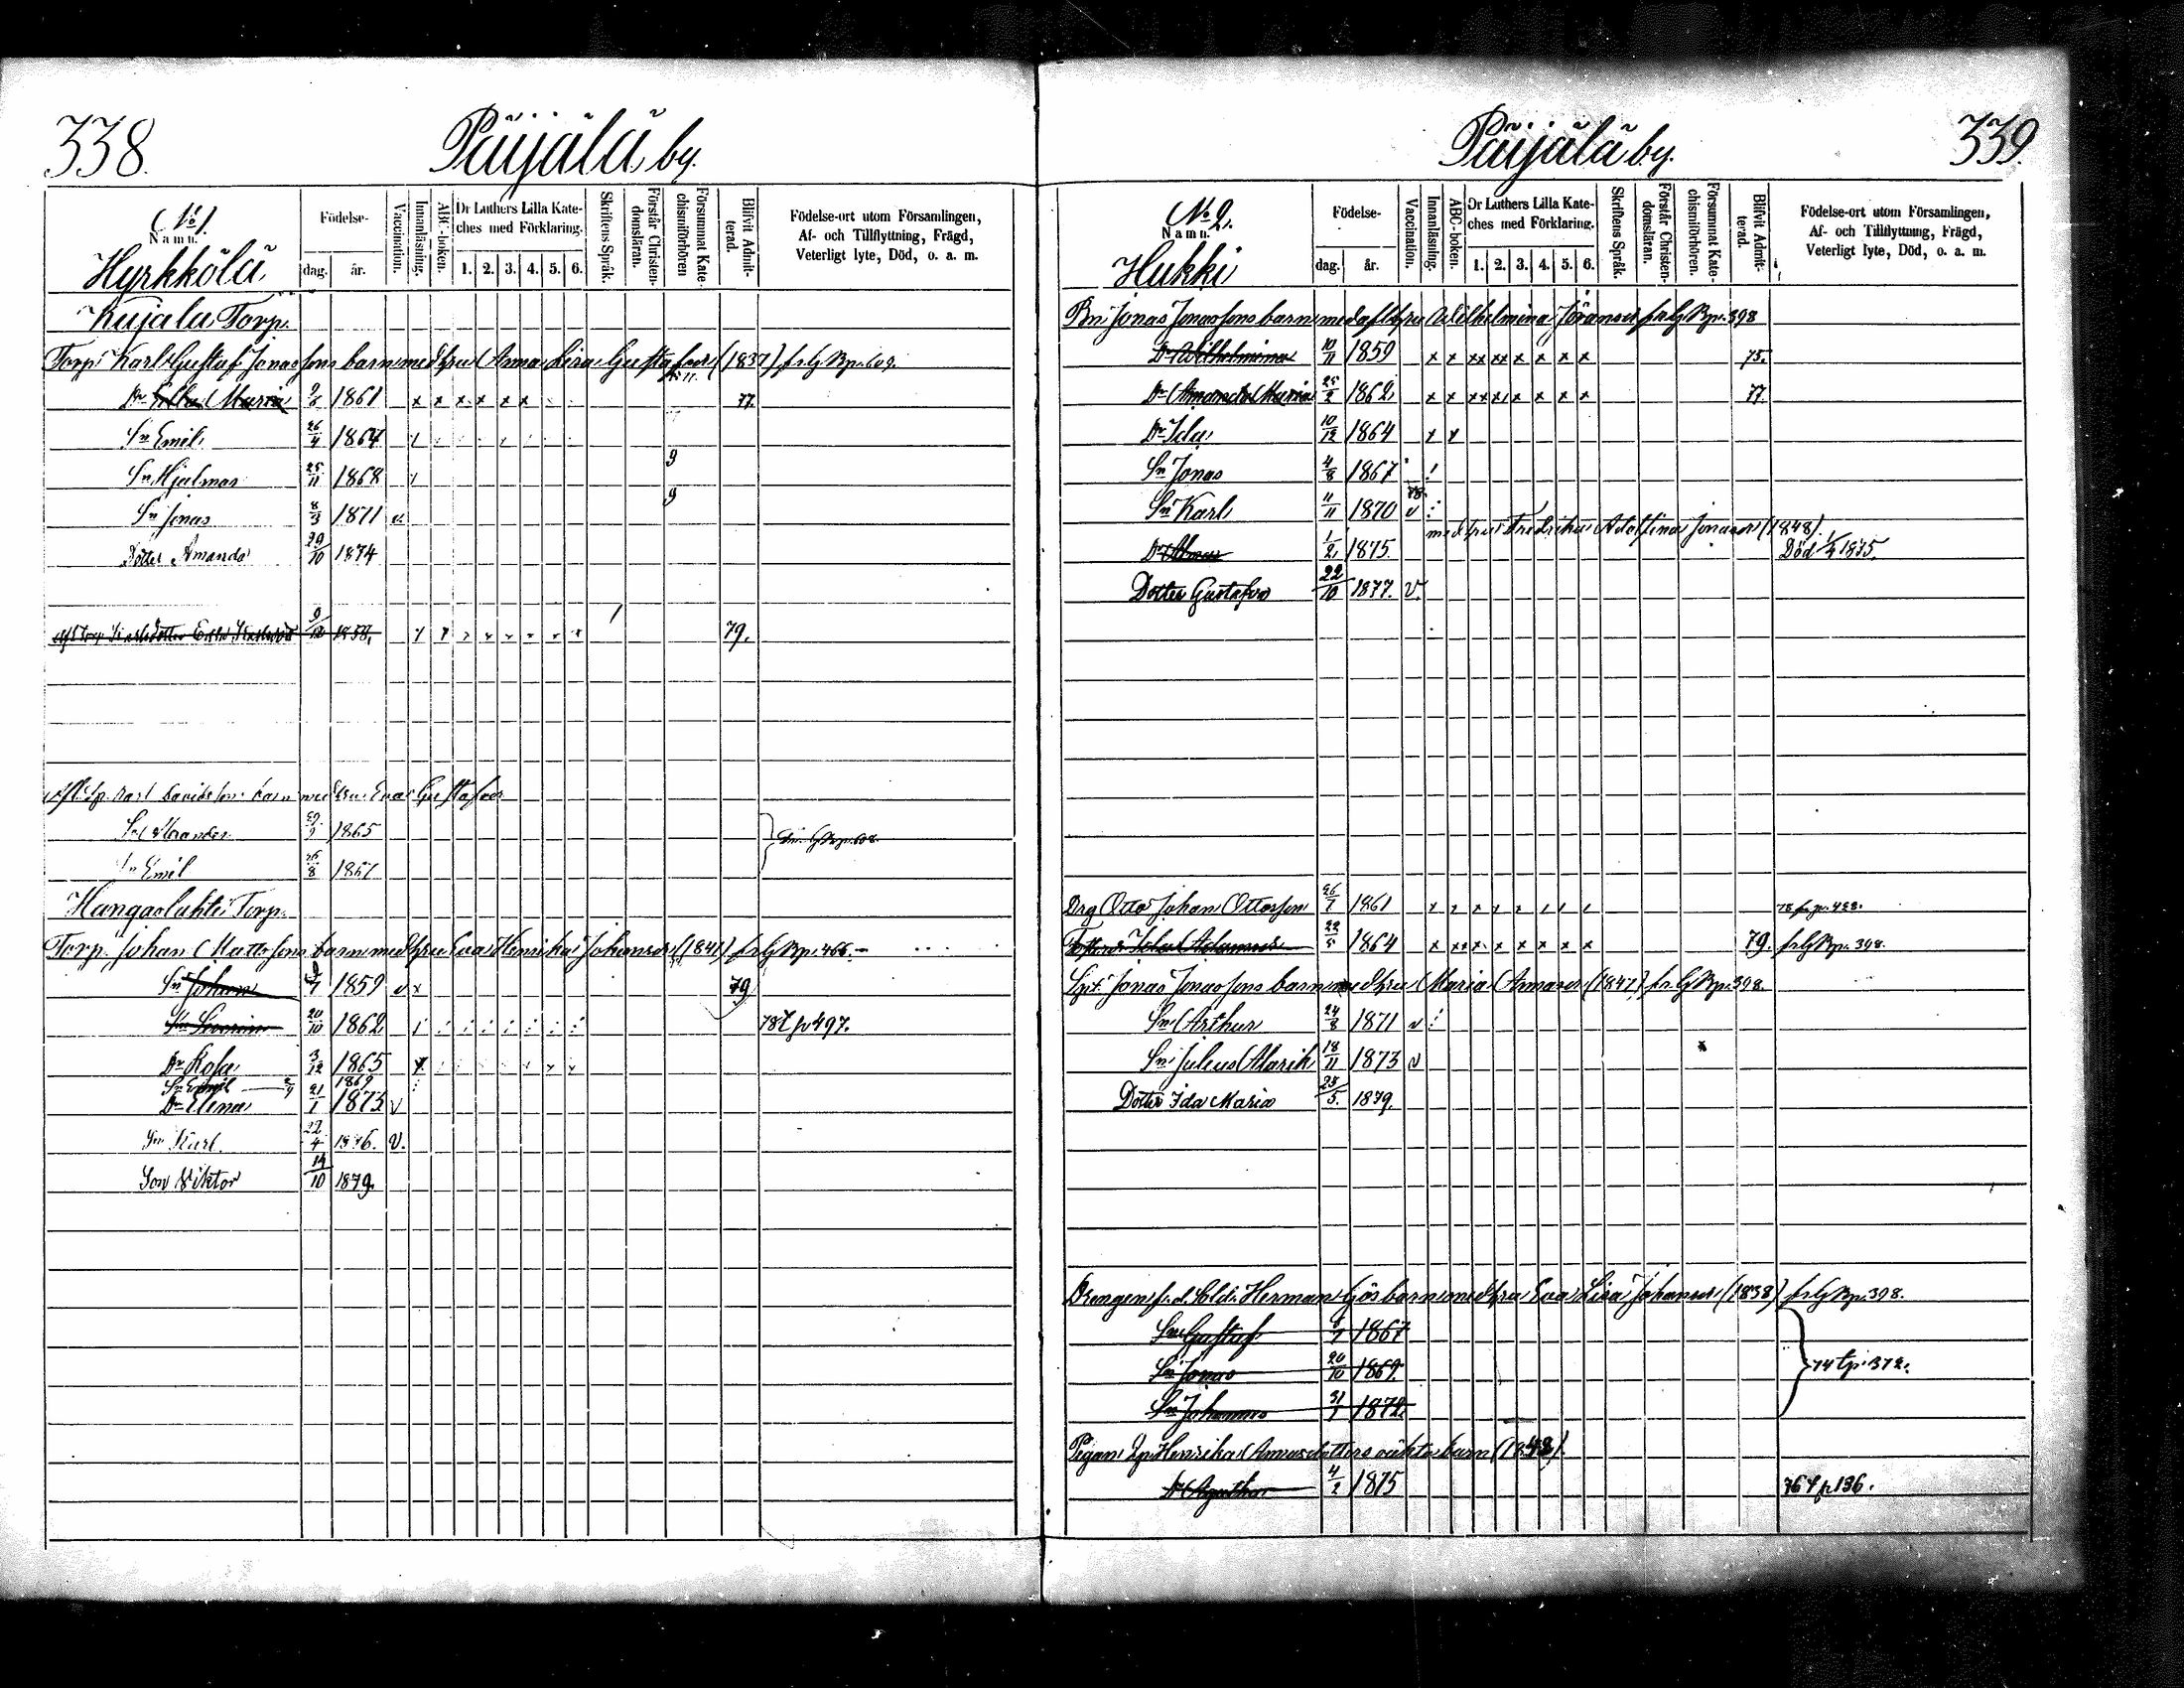 338.
Päijälä by.
No 1.
Namn.
Hyrkkölä
Födelse-
dag.
år.
Vaccination.
Innanläsning.
ABC-boken.
Dr Luthers Lilla Kate-
ches med Förklaring.
1. 2. 3. 4. 5. 6.
Skriftens Språk.
Förstår Christen-
domsläran.
Försummat Kate-
chismiförhören
Blifvit Admit-
terad.
Födelse-ort utom Församlingen,
Af- och Tillflyttning, Frägd,
Veterligt lyte, Död, o. a. m.
Kujala Torp.
Torp. Karl Gustaf Jonassons barn med hru Anna Lisa Gustafsdr (1837)
Dr Maria 1861 x x x x x x 77
Sn Emil 26/4 1864
Sn Hjalmar 25/11 1868
Sn Jonas 8/3 1871 v.
Dotter Amanda 29/10 1874
79.
barn med hru Eva Gustafsdr
1865
Sn Emil 26/8 1867
Hangaslahti Torp.
Torp. Johan Mattssons barn med hru Eva Henrika Johansdr (1841) frlg Bp. 466.
Sn Johan 1859 v x 79
20/10 1862 78 t p 497.
Dr Rosa 3/12 1865
Sn Emil 1869
Dr Elena 21/1 1873 v
Sn Karl. 22/4 1876. v.
Son Viktor 14/10 1879.
339.
Päijälä by.
No 2.
Namn.
Hukki
Födelse-
dag.
år.
Vaccination.
Innanläsning.
ABC-boken.
Dr Luthers Lilla Kate-
ches med Förklaring.
1. 2. 3. 4. 5. 6.
Skriftens Språk.
Förstår Christen-
domsläran.
Försummat Kate-
chismiförhören.
Blifvit Admit-
terad.
Födelse-ort utom Församlingen,
Af- och Tillflyttning, Frägd,
Veterligt lyte, Död, o. a. m.
Bn Jonas Jonassons barn med afl hru Wilhelmina Göransdr frlg Bp. 398
Dr Wilhelmina 10/11 1859 x x xx xx x x x x 75.
Dr Amanda Maria 25/2 1862 x x xx xx x x x x 77.
Dr Ida 10/12 1864 x x
Sn Jonas 4/8 1867
Sn Karl 11/11 1870 v
med hru Fredrika Adolfina Jonasdr (1848)
Dr Alma 1/2 1875. Död 1/4 1875.
Dotter Gustafva 22/10 1877. v.
Drg Otto Johan Ottosson 26/7 1861
Ida Adamsdr 22/5 1864 x xxx x x x x x x 79. frlg Bp. 398.
Jonas Jonassons barn med hru Maria Annasdr (1847) frlg Bp. 398.
Sn Arthur 24/8 1871 v
Sn Julius Alarik 18/11 1873 v
Dotter Ida Maria 25/5. 1879.
Drengen f. d. Sold. Herman Gös barn med hru Eva Lisa Johansdr (1838) frlg Bp. 398.
Sn Gustaf 1867
Sn Jonas 20/10 1869.
Sn Johannes 31/1 1872.
74 t p 372.
Pigan Henrika Annasdotters oäkta barn (1848).
Dr Agatha 4/2 1875 76 t p 136.